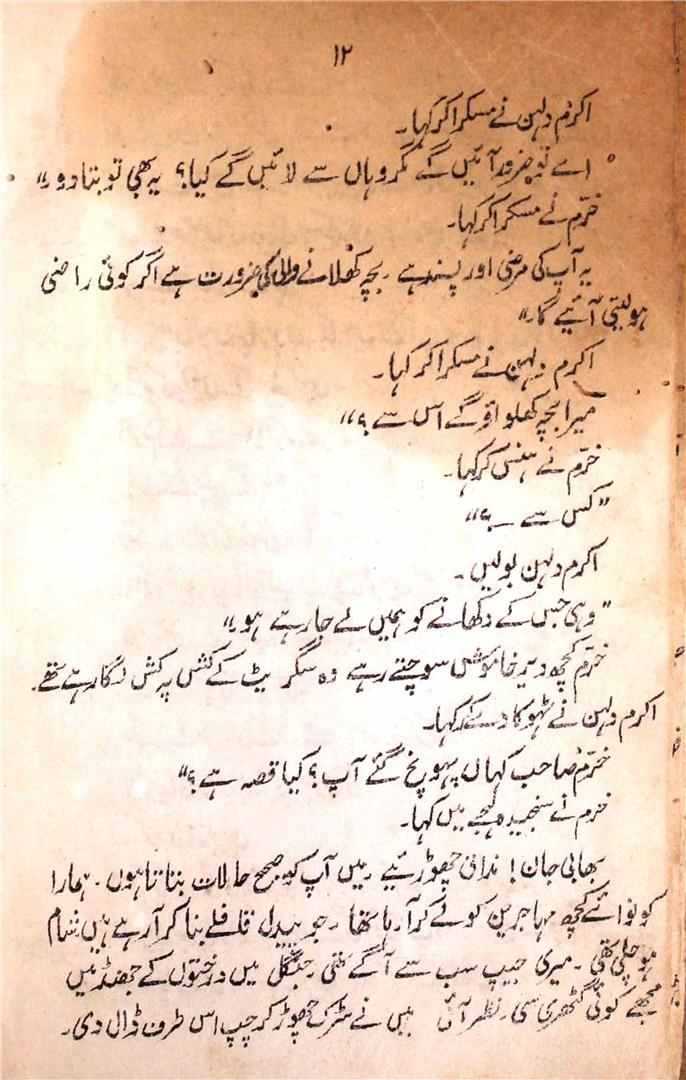 ۱۲
اکرم دلہن نے مسکرا کر کہا۔
"اے تو ضرور آئیں گے مگر وہاں سے لائیں گے کیا؟ یہ بھی تو بتا دو۔"
خرّم نے مسکرا کر کہا۔
یہ آپ کی مرضی اور پسند ہے۔ بچہ کھلانے والی کی ضرورت ہے اگر کوئی راضی
ہو لیتی آئیے گا۔"
اکرم دلہن نے مسکرا کر کہا۔
میرا بچہ کھلواؤ گے اس سے؟"
خرّم نے ہنس کر کہا۔
"کس سے ۔؟"
اکرم دلہن بولیں۔
"وہی جس کے دکھانے کو ہمیں لے جا رہے ہو۔"
خرّم کچھ دیر خاموش سوچتے رہے وہ سگریٹ کے کش پر کش لگا رہے تھے۔
اکرم دلہن نے ٹہوکا دے کر کہا۔
خرّم صاحب کہاں پہونچ گئے آپ؟ کیا قصہ ہے؟"
خرم نے سنجیدہ لہجے میں کہا۔
بھابی جان! مذاق چھوڑئیے میں آپ کو صحیح حالات بتاتا ہوں۔ ہمارا
کونوائے کچھ مہاجرین کو لے کر آ رہا تھا۔ جو پیدل قافلے بنا کر آ رہے ہیں شام
ہو چلی تھی۔ میری جیپ سب سے آگے تھی۔ جنگل میں درختوں کے جھنڈ میں
مجھے کوئی گٹھری سی نظر آئی میں نے سڑک چھوڑ کر جیپ اس طرف ڈال دی۔